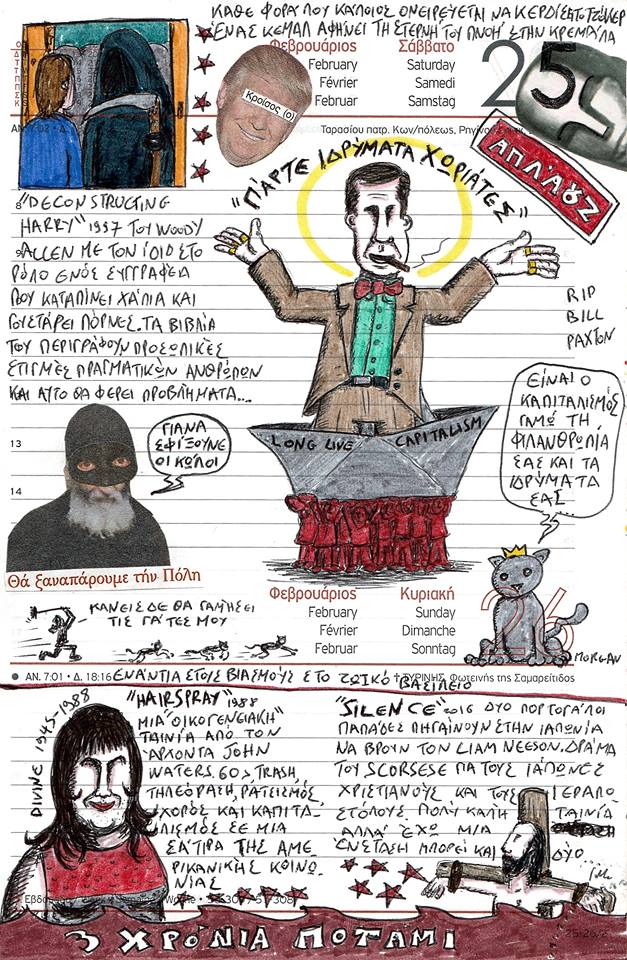 ΚΑΘΕ ΦΟΡΑ ΠΟΥ ΚΑΠΟΙΟΣ ΟΝΕΙΡΕΥΕΤΑΙ ΝΑ ΚΕΡΔΙΣΕΙ ΤΟ ΤΖΟΚΕΡ
ΕΝΑΣ ΚΕΜΑΛ ΑΦΗΝΕΙ ΤΗ ΣΤΕΡΝΗ ΤΟΥ ΠΝΟΗ ΣΤΗΝ ΚΡΕΜΑΛΑ
Φεβρουάριος Σάββατο
February Saturday
Février Samedi
Februar Samstag
25
Κροίσος (ο)
Ταρασίου πατρ. Κων/πόλεως, Ρηγίνου
ΑΠΛΑΟΥΖ
"ΠΑΡΤΕ ΙΔΡΥΜΑΤΑ ΧΩΡΙΑΤΕΣ"
"DECONSTRUCTING
HARRY" 1997 ΤΟΥ WOODY
ALLEN ΜΕ ΤΟΝ ΙΔΙΟ ΣΤΟ
ΡΟΛΟ ΕΝΟΣ ΣΥΓΓΡΑΦΕΑ
ΠΟΥ ΚΑΤΑΠΙΝΕΙ ΧΑΠΙΑ ΚΑΙ
ΓΟΥΣΤΑΡΕΙ ΠΟΡΝΕΣ. ΤΑ ΒΙΒΛΙΑ
ΤΟΥ ΠΕΡΙΓΡΑΦΟΥΝ ΠΡΟΣΩΠΙΚΕΣ
ΣΤΙΓΜΕΣ ΠΡΑΓΜΑΤΙΚΩΝ ΑΝΘΡΩΠΩΝ
ΚΑΙ ΑΥΤΟ ΘΑ ΦΕΡΕΙ ΠΡΟΒΛΗΜΑΤΑ...
RIP
BILL
PAXTON
ΕΙΝΑΙ Ο
ΚΑΠΙΤΑΛΙΣΜΟΣ
ΓΑΜΩ ΤΗ
ΦΙΛΑΝΘΡΩΠΙΑ
ΣΑΣ ΚΑΙ ΤΑ
ΙΔΡΥΜΑΤΑ
ΣΑΣ...
LONG LIVE CAPITALISM
13
14
ΓΙΑ ΝΑ
ΣΦΙΞΟΥΝΕ
ΟΙ ΚΩΛΟΙ
Θά ξαναπάρουμε τήν Πόλη
ΚΑΝΕΙΣ ΔΕ ΘΑ ΓΑΜΗΣΕΙ
ΤΙΣ ΓΑΤΕΣ ΜΟΥ
Φεβρουάριος Κυριακή
February Sunday
Février Dimanche
Februar Sonntag
26
MORGAN
ΑΝ. 7:01 • Δ. 18:16 ΕΝΑΝΤΙΑ ΣΤΟΥΣ ΒΙΑΣΜΟΥΣ ΣΤΟ ΖΩΙΚΟ ΒΑΣΙΛΕΙΟ
† ΤΥΡΙΝΗΣ, Φωτεινής της Σαμαρείτιδος
DIVINE 1945-1988
"HAIRSPRAY" 1988
ΜΙΑ "ΟΙΚΟΓΕΝΕΙΑΚΗ"
ΤΑΙΝΙΑ ΑΠΟ ΤΟΝ
ΑΡΧΟΝΤΑ JOHN
WATERS. 60s, TRASH,
ΤΗΛΕΟΡΑΣΗ, ΡΑΤΣΙΣΜΟΣ,
ΧΟΡΟΣ ΚΑΙ ΚΑΠΙΤΑ-
ΛΙΣΜΟΣ ΣΕ ΜΙΑ
ΣΑΤΙΡΑ ΤΗΣ ΑΜΕ
ΡΙΚΑΝΙΚΗΣ ΚΟΙΝΩ
ΝΙΑΣ
"SILENCE" 2016 ΔΥΟ ΠΟΡΤΟΓΑΛΟΙ
ΠΑΠΑΔΕΣ ΠΗΓΑΙΝΟΥΝ ΣΤΗΝ ΙΑΠΩΝΙΑ
ΝΑ ΒΡΟΥΝ ΤΟΝ LIAM NEESON. ΔΡΑΜΑ
ΤΟΥ SCORSESE ΓΙΑ ΤΟΥΣ ΙΑΠΩΝΕΣ
ΧΡΙΣΤΙΑΝΟΥΣ ΚΑΙ ΤΟΥΣ ΙΕΡΑΠΟ-
ΣΤΟΛΟΥΣ. ΠΟΛΥ ΚΑΛΗ ΤΑΙΝΙΑ
ΑΛΛΑ ΕΧΩ ΜΙΑ
ΕΝΣΤΑΣΗ ΜΠΟΡΕΙ ΚΑΙ ΔΥΟ...
3 ΧΡΟΝΙΑ ΠΟΤΑΜΙ
25-26/2